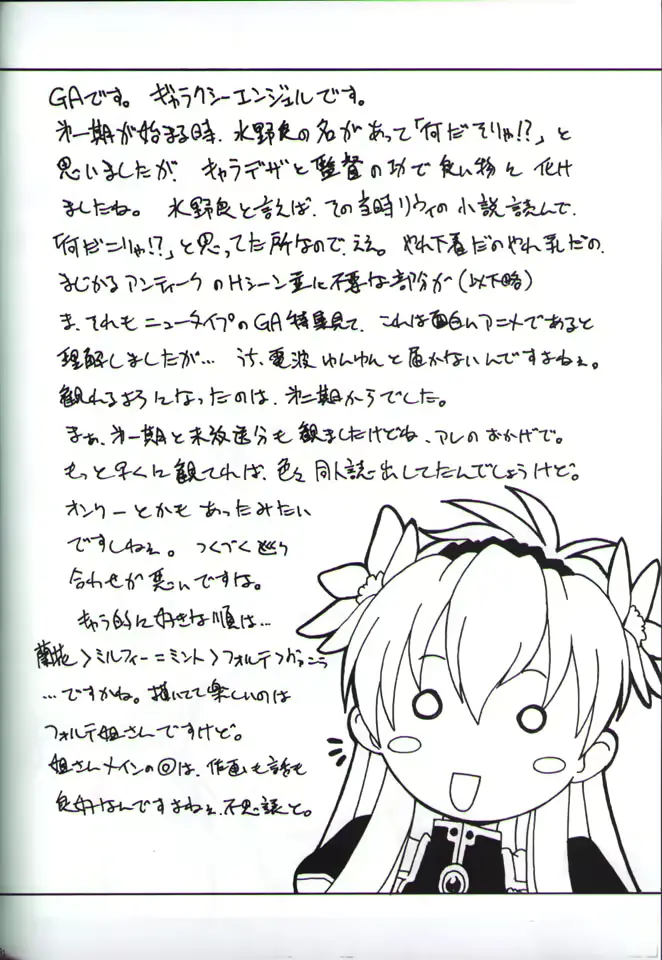 GAです。 ギャラクシーエンジェルです。
第一期が始まる時、水野良の名があって「何だそりゃ!?」と
思いましたが、キャラデザと監督の功で良い物に化け
ましたね。 水野良と言えば、その当時リウイの小説読んで、
「何だこりゃ!?」と思ってた所なので、ええ。 やれ下着だのやれ乳だの、
まじかるアンティークのHシーン並に不要な部分が(以下略)
ま、それもニュータイプのGA特集見て、これは面白いアニメであると
理解しましたが… うち、電波ゆんゆんと届かないんですよねぇ。
観れるようになったのは、第二期からでした。
まぁ、第一期と未放送分も観ましたけどね、アレのおかげで。
もっと早くに観てれば、色々同人誌出してたんでしょうけど。
オンリーとかもあったみたい
ですしねぇ。 つくづく巡り
合わせが悪いですな。
キャラ的に好きな順は…
蘭花>ミルフィー=ミント>フォルテ>
…ですかね。描いてて楽しいのは
フォルテ姐さんですけど。
姐さんメインの回は、作画も話も
良好なんですよねぇ、不思議と。